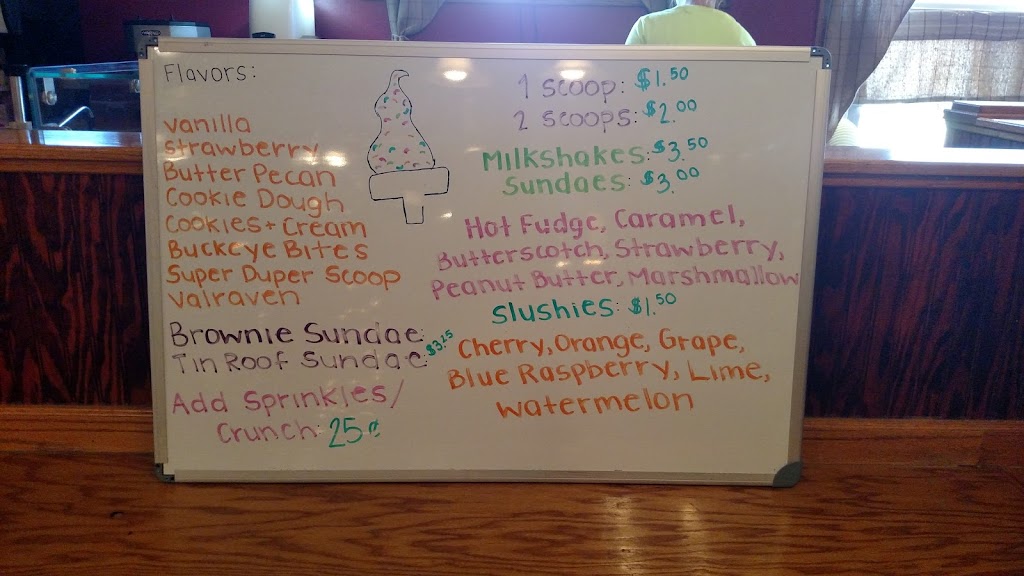 Flavors:
vanilla
strawberry
Butter Pecan
Cookie Dough
Cookies + Cream
Buckeye Bites
Super Duper Scoop
Valraven
Brownie Sundae:
Tin Roof Sundae: $3.25
Add Sprinkles/
Crunch: 25¢
1 scoop: $1.50
2 scoops: $2.00
Milkshakes: $3.50
Sundaes: $3.00
Hot Fudge, Caramel,
Butterscotch, Strawberry,
Peanut Butter, Marshmallow
Slushies: $1.50
Cherry, Orange, Grape,
Blue Raspberry, Lime,
Watermelon